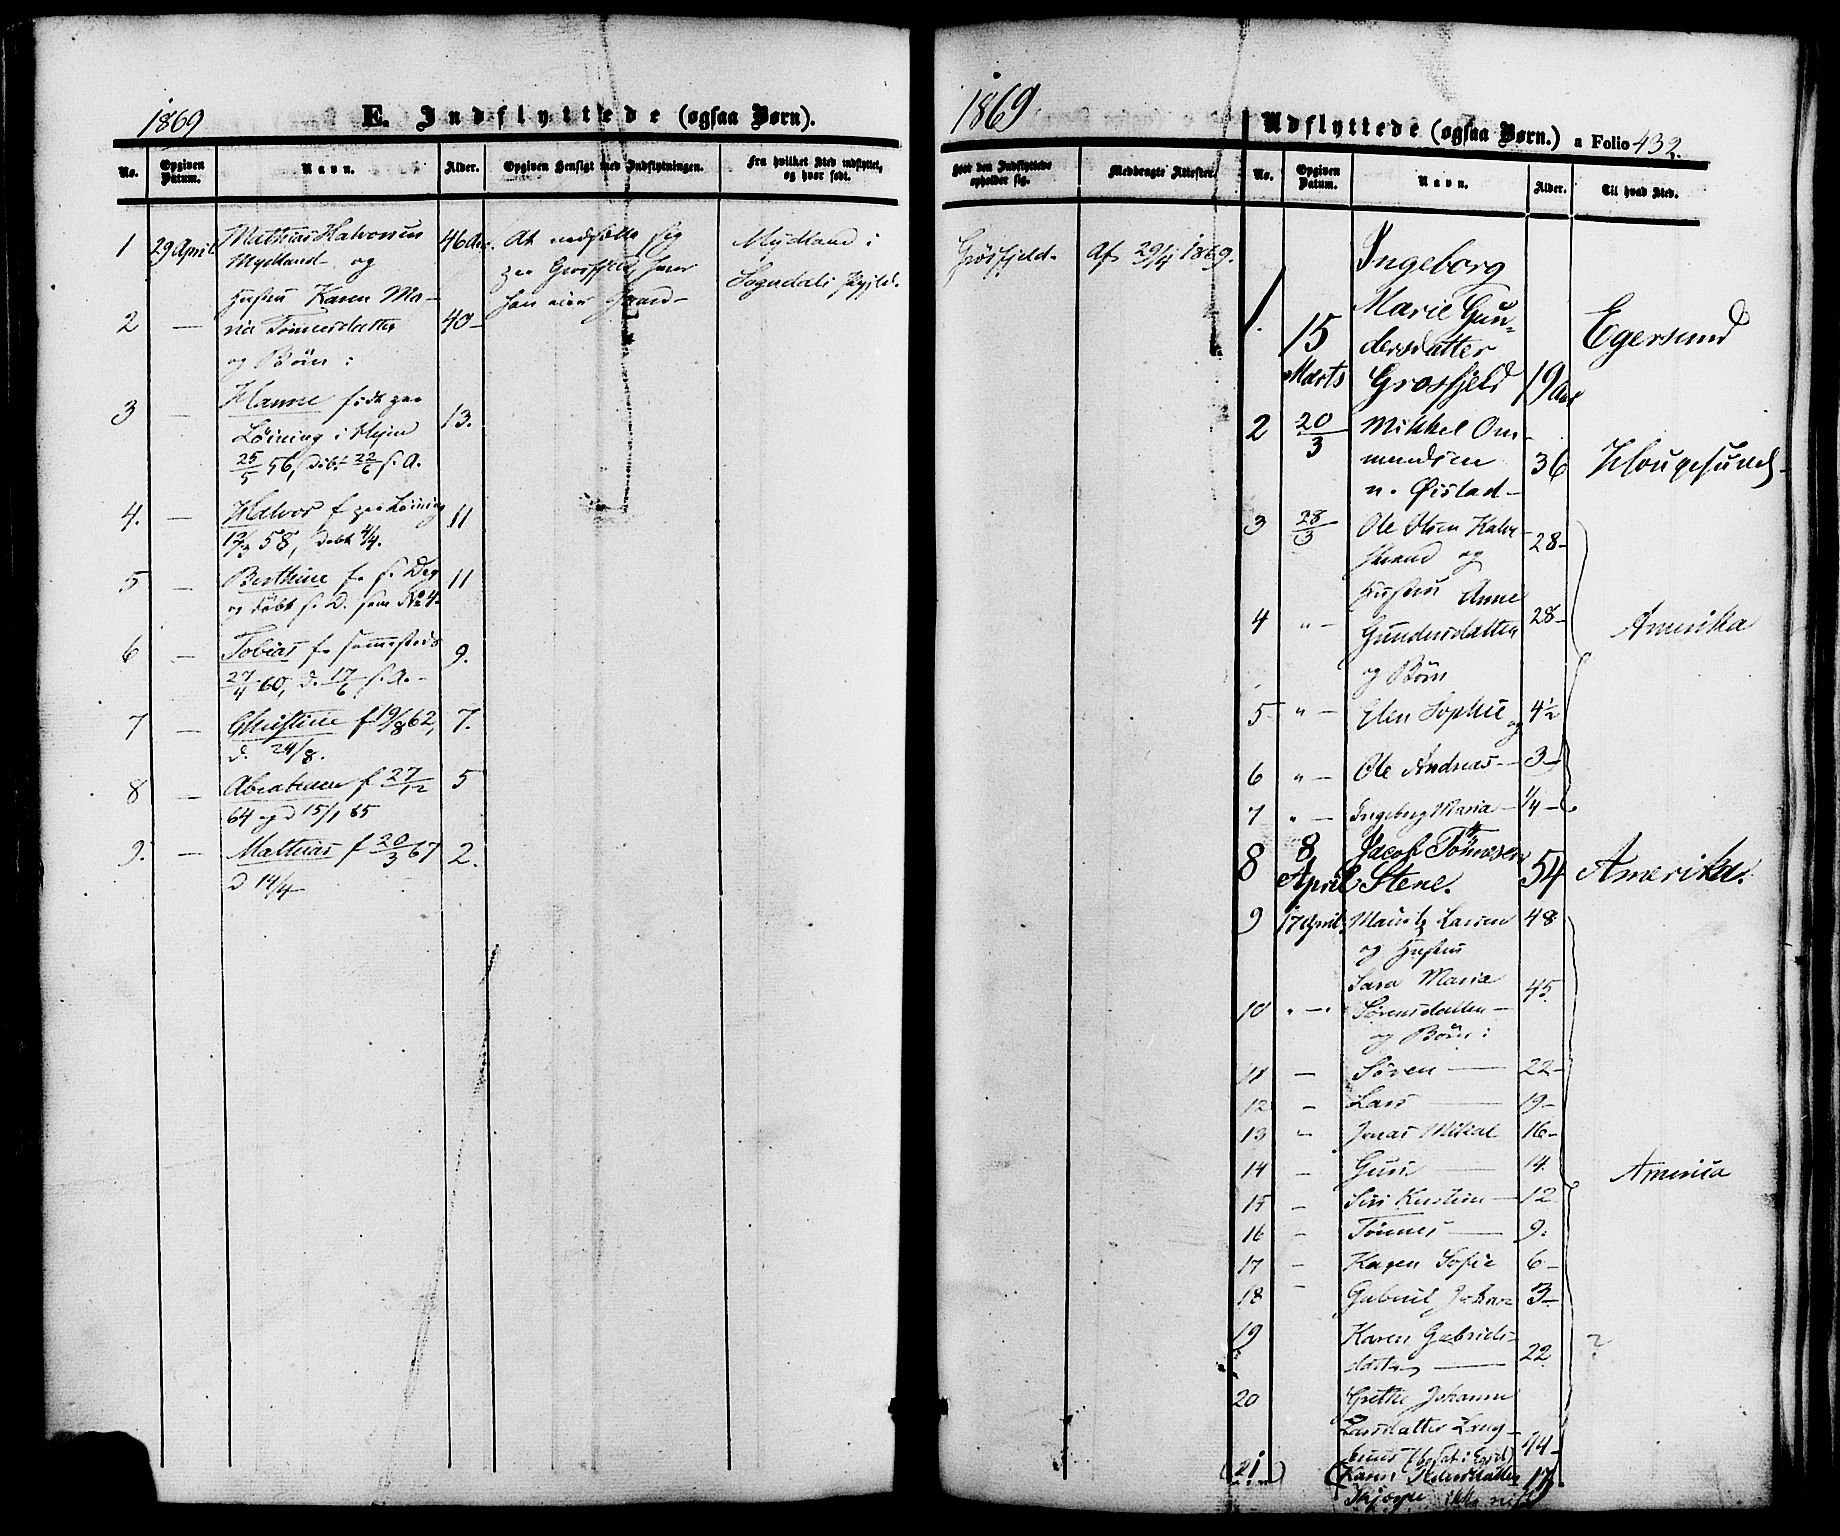 1869
E. Indflyttede (ogsaa Børn).
No.
Opgiven Datum.
Navn.
Alder.
Opgiven Hensigt med Indflytningen.
Fra hvilket Sted indflyttet, og hvor født.
1 29 April Mathias Halvorsen 46 Aar At nedsætte sig Mydland i
Mydland og paa Grosfjeld, hvor Sogndals
Hustru Karen Ma- han eier
2 — ria Tønnesdatter 40-
og Børn:
3 — Hanne født paa 13.
Løining i Heien
25/5 56, døbt 22/6 s. A.
4. — Halvor f paa Løining 11
58, døbt 4/4.
5 — Berthine f. s. Dag 11
og døbt s. D. som No 4.
6 — Tobias f. sammesteds 9.
27/4 60, d. 17/6 s. A.
7 — Christine f 19/8 62, 7.
d. 24/8.
8 — Abraham f 27/12 5
64 og d 15/1 65
9. — Mathias f 20/3 67 2.
d 14/4
1869
Udflyttede (ogsaa Børn.) a Folio 432.
Hvor den Indflyttede opholder sig.
Medbragte Attester.
No.
Opgiven Datum.
Navn.
Alder.
Til hvad Sted.
Grosfjeld. Af 29/4 1869.
Ingeborg
1. Marie Gun-
15 dersdatter Egersund
Marts Grosfjeld 19 Aar
2 20/3 Mikkel Om-
mundsen 36 Hougesund
n. Øistad
3 28/3 Ole Olsen
og 28-
Hustru Anne
4 " - Gundersdatter 28- Amerika
og Børn
5 " - Elen Sophie og 4½
6 " - Ole Andreas - 3-
7 " - Ingeborg Maria - ¼ -
8 8 Jacob Tønnesen
April Stene. 54 Amerika.
9 17 April Mauritz Larsen 48
og Hustru
Sara Maria 45
10 " - " Sørensdatter -
og Børn:
11 — Søren — 22-
12 - Lars — 19-
13 - Jonas Mikal 16-
14 - Guri — 14. Amerika
15 - Siri Kirstine 12
16 - Tønnes — 9.
17 - Karen Sofie 6-
18 - Gabriel Johan 3-
19 Karen Gabriels-
datter — 22 ?
20 Grethe Johanne
Larsdatter
44-
(21) (Karen Pedersdatter 17